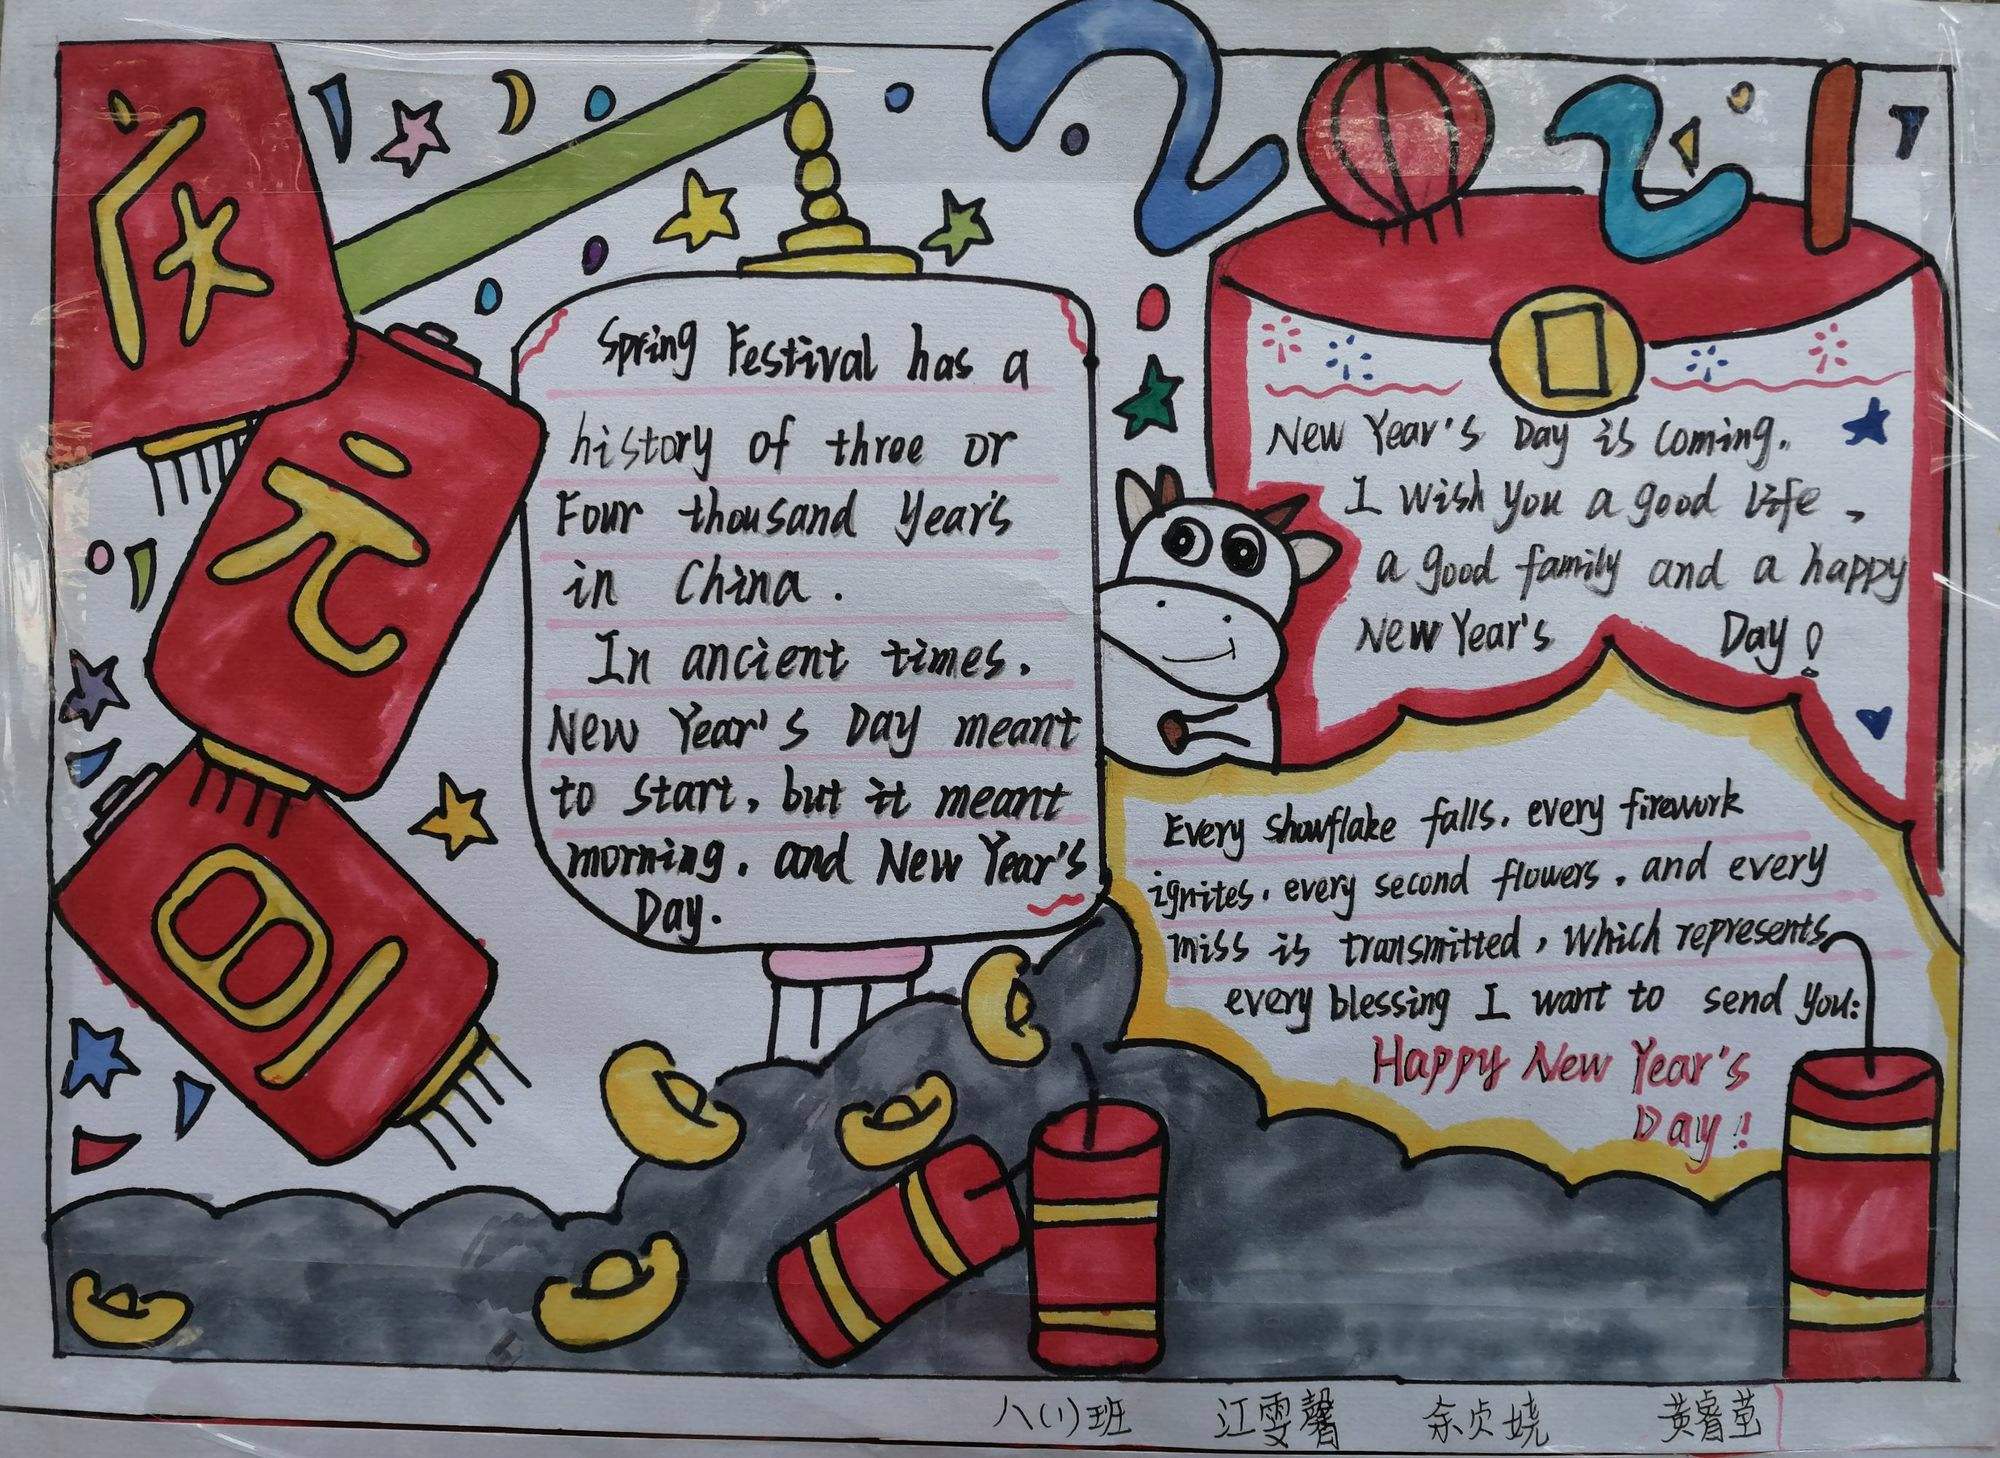 庆
元
旦
2021
Spring Festival has a
history of three or
Four thousand year's
in China.
In ancient times.
New Year's Day meant
to start, but it meant
morning. and New Year's
Day.
New Year's Day is coming.
I wish you a good life,
a good family and a happy
New Year's Day!
Every snowflake falls. every firework
ignites. every second flowers. and every
miss is transmitted, which represents
every blessing I want to send you:
Happy New Year's
Day!!
八(1)班 江雯馨 余贞娆 黄睿茔